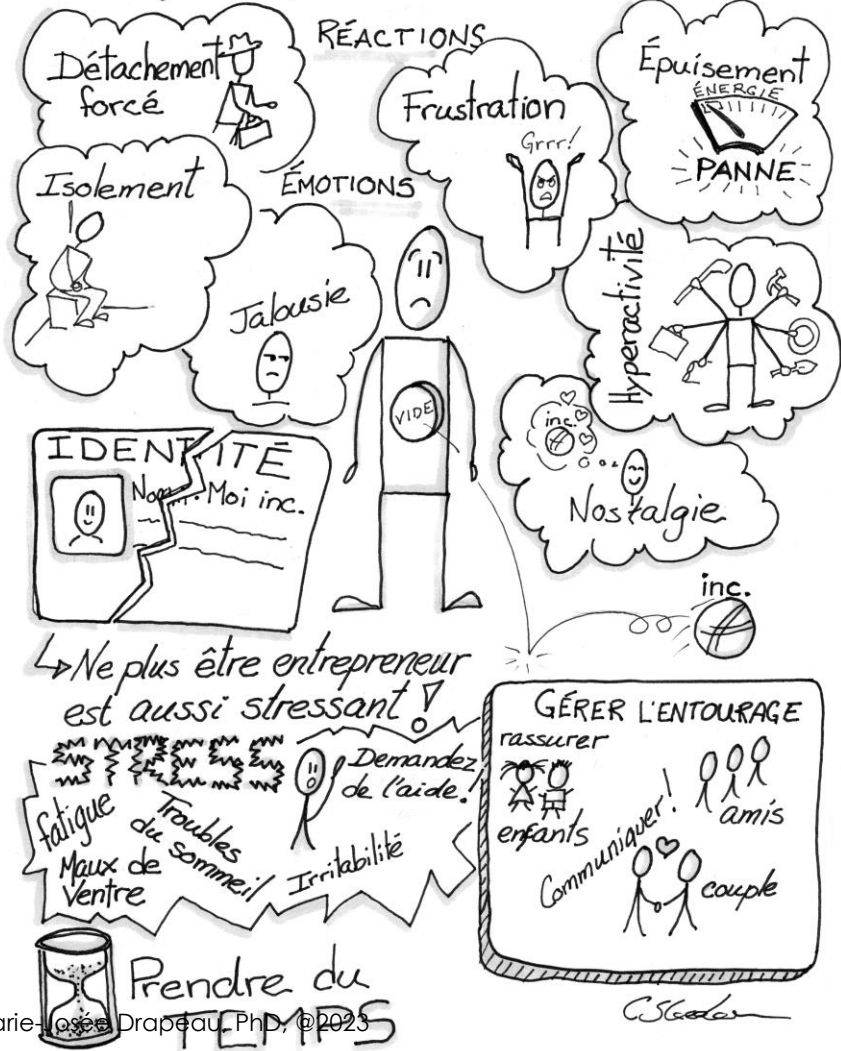 RÉACTIONS
Détachement
forcé
Frustration
Grrr!
Épuisement
ÉNERGIE
PANNE
Isolement
ÉMOTIONS
Jalousie
Hyperactivité
VIDE
inc.
Nostalgie
IDENTITÉ
Nom: Moi inc.
inc.
Ne plus être entrepreneur
est aussi stressant!
STRESS
Demandez
de l'aide!
fatigue
Troubles
du sommeil
Maux de
Ventre
Irritabilité
GÉRER L'ENTOURAGE
rassurer
enfants
Communiquer!
amis
couple
Prendre du
TEMPS
arie-Josée Drapeau, PhD, @2023